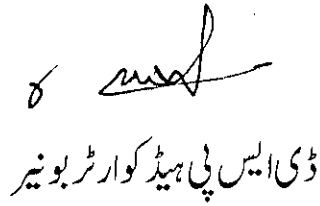 ڈی ایس پی ہیڈ کوارٹر بونیر